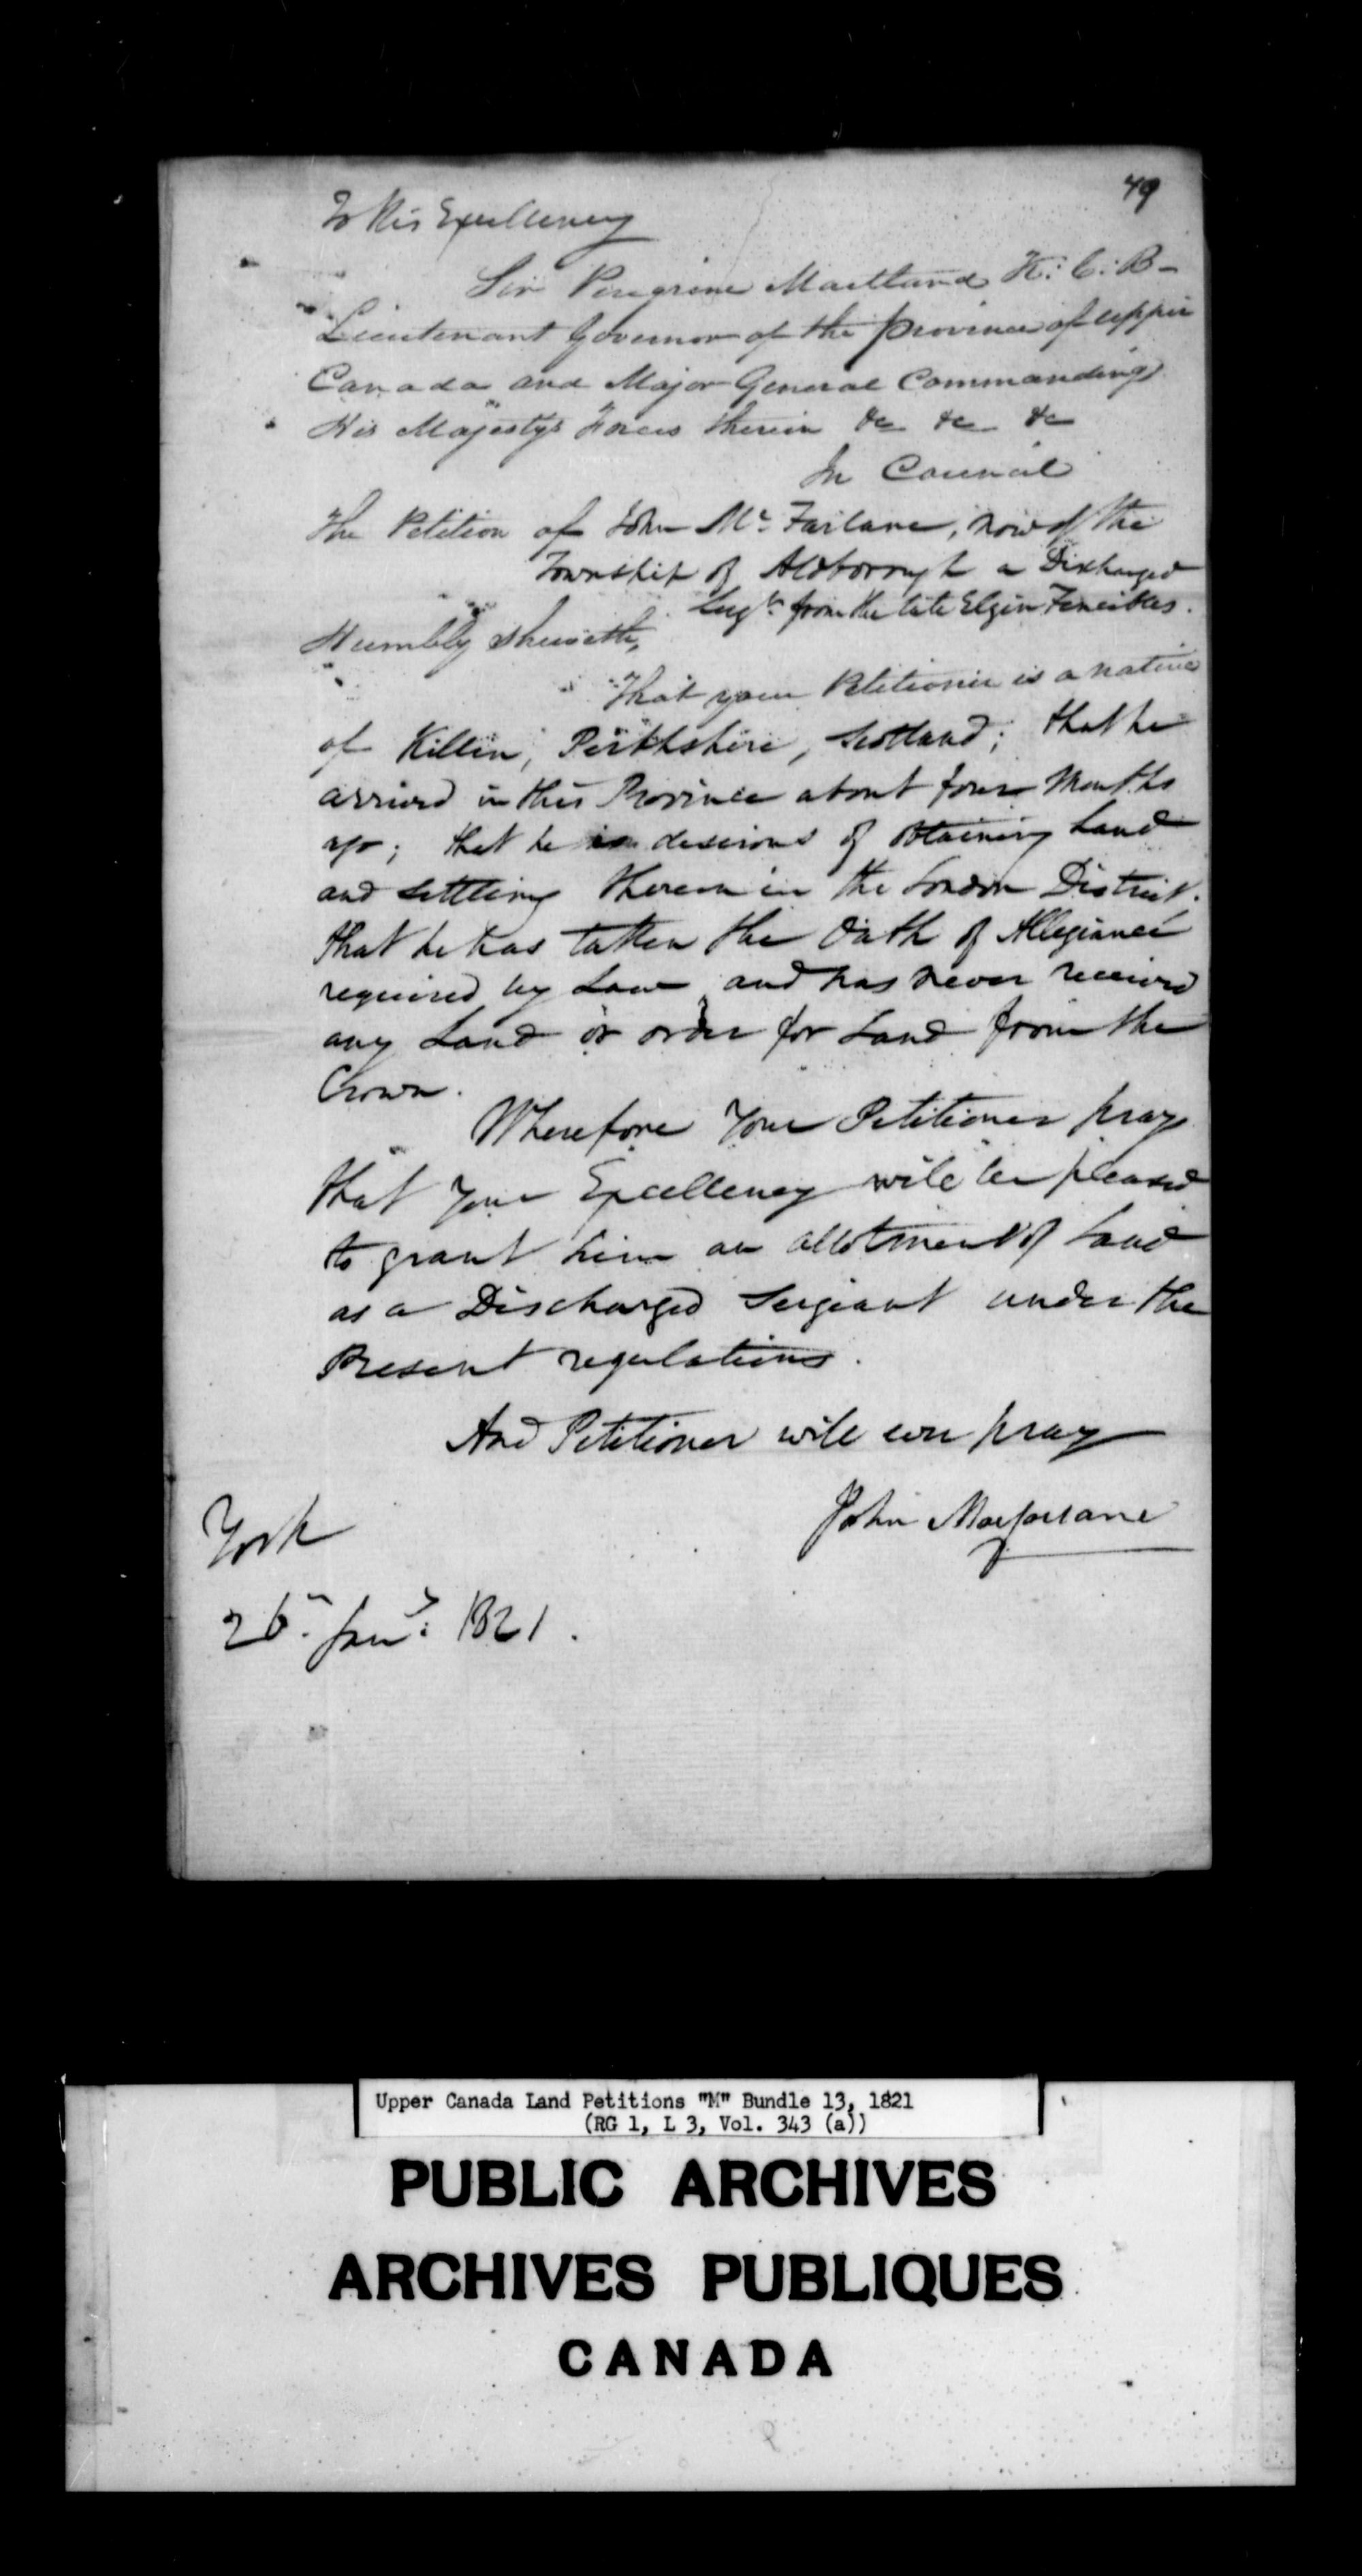 49
To His Excellency
Sir Peregrine Maitland K: C: B-
Lieutenant Governor of the Province of Upper
Canada and Major General Commanding
His Majestys Forces therein &c &c &c
In Council
The Petition of John Mc Farlane, now of the
Township of Aldborough a Discharged
Sergt from the late Elgin Fencibles.
Humbly Sheweth,
That your Petitioner is a native
of Killin, Perthshire, Scotland; that he
arrived in this Province about four Months
ago; that he is desirous of obtaining Land
and settling thereon in the London District.
that he has taken the Oath of Allegiance
required by Law and has never received
any Land or order for Land from the
Crown.
Wherefore Your Petitioner prays
that Your Excellency will be pleased
to grant him an allotment of Land
as a Discharged Sergeant under the
Present regulations.
And Petitioner will ever pray
John Macfarlane
York
26th Jany: 1821.
Upper Canada Land Petitions "M" Bundle 13, 1821
(RG 1, L 3, Vol. 343 (a))
PUBLIC ARCHIVES
ARCHIVES PUBLIQUES
CANADA